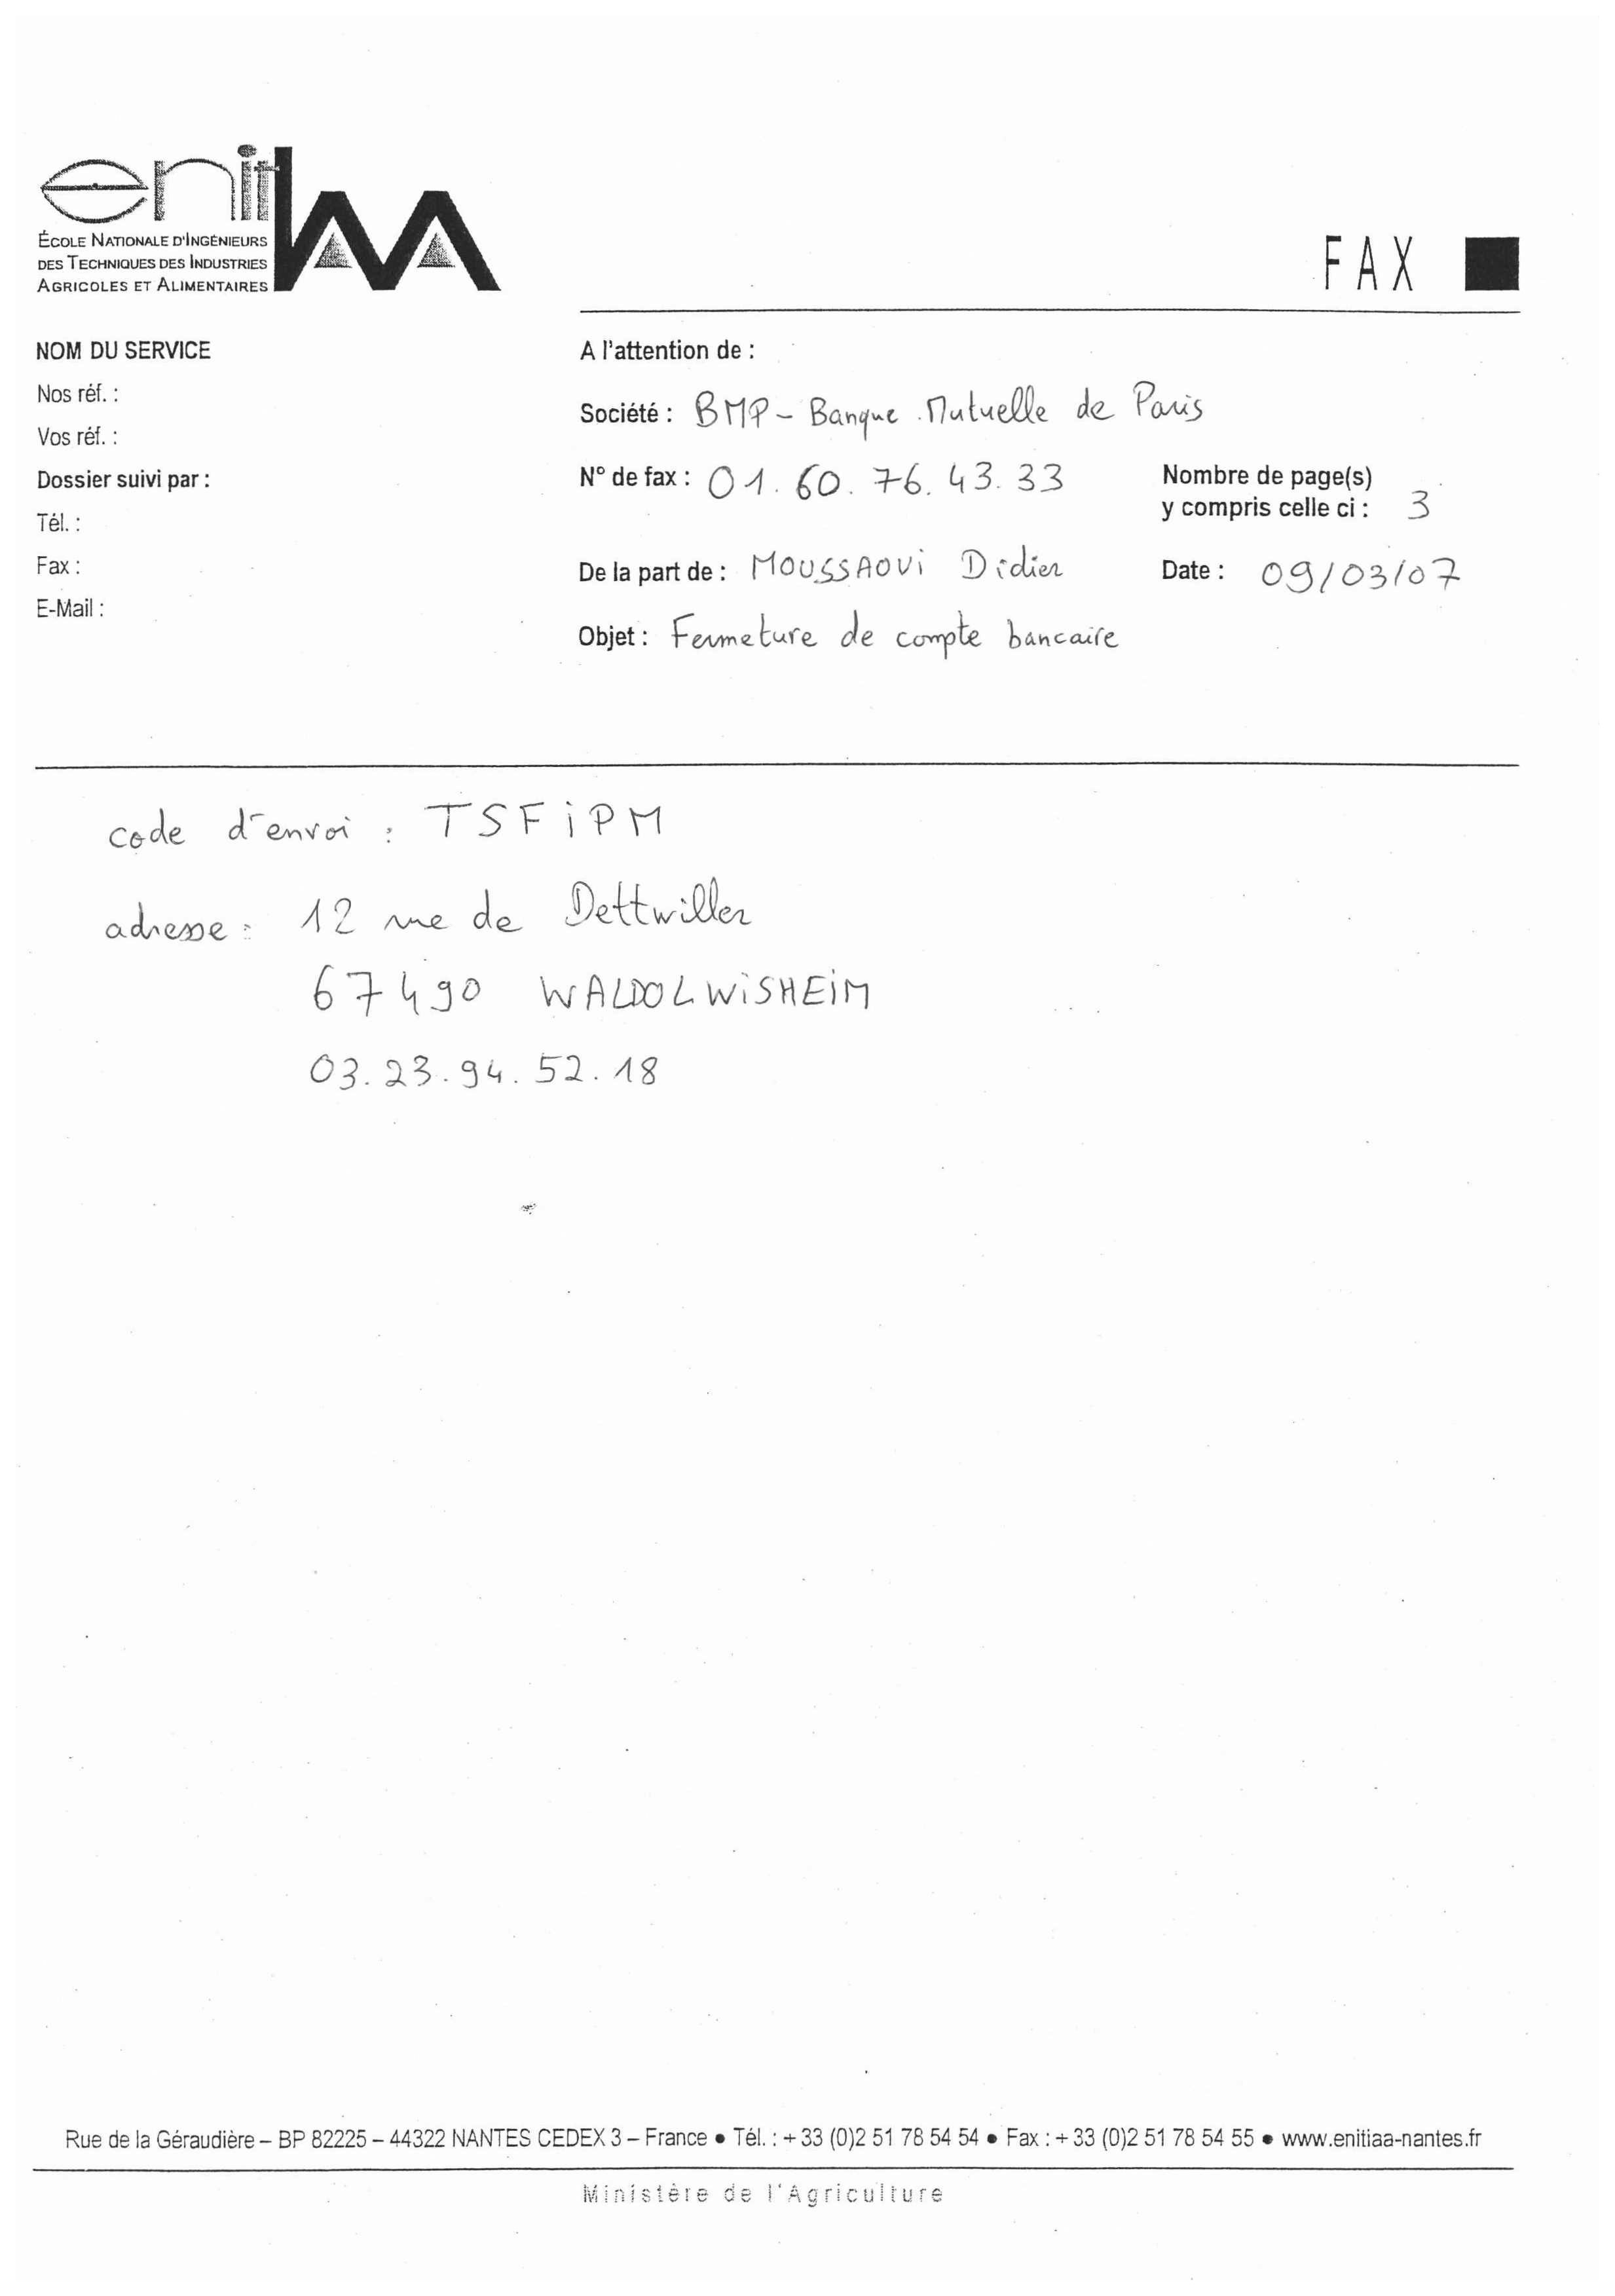 enitIAA
ÉCOLE NATIONALE D'INGÉNIEURS
DES TECHNIQUES DES INDUSTRIES
AGRICOLES ET ALIMENTAIRES
FAX
NOM DU SERVICE
Nos réf. :
Vos réf. :
Dossier suivi par :
Tél. :
Fax :
E-Mail :
A l'attention de :
Société : BMP - Banque Mutuelle de Paris
N° de fax : 01. 60. 76. 43. 33
Nombre de page(s)
y compris celle ci : 3
De la part de : MOUSSAOUi Didier
Date : 09/03/07
Objet : Fermeture de compte bancaire
code d'envoi : TSFiPM
adresse : 12 rue de Dettwiller
67490 WALDOLWiSHEiM
03. 23. 94. 52. 18
Rue de la Géraudière – BP 82225 – 44322 NANTES CEDEX 3 – France ● Tél. : + 33 (0)2 51 78 54 54 ● Fax : + 33 (0)2 51 78 54 55 ● www.enitiaa-nantes.fr
Ministère de l'Agriculture